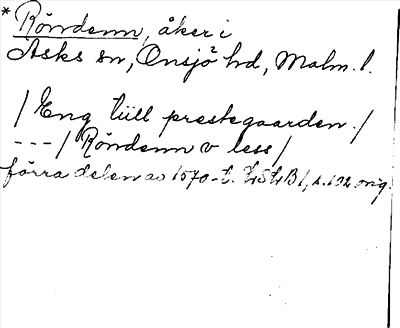 * Röndenn, åker i
Asks sn, Onsjö hd, Malm. l.
/ Eng tiill prestegaarden. /
--- / Röndenn v less /
förra delen av 1570-t. LSLB 1, s. 102 orig.